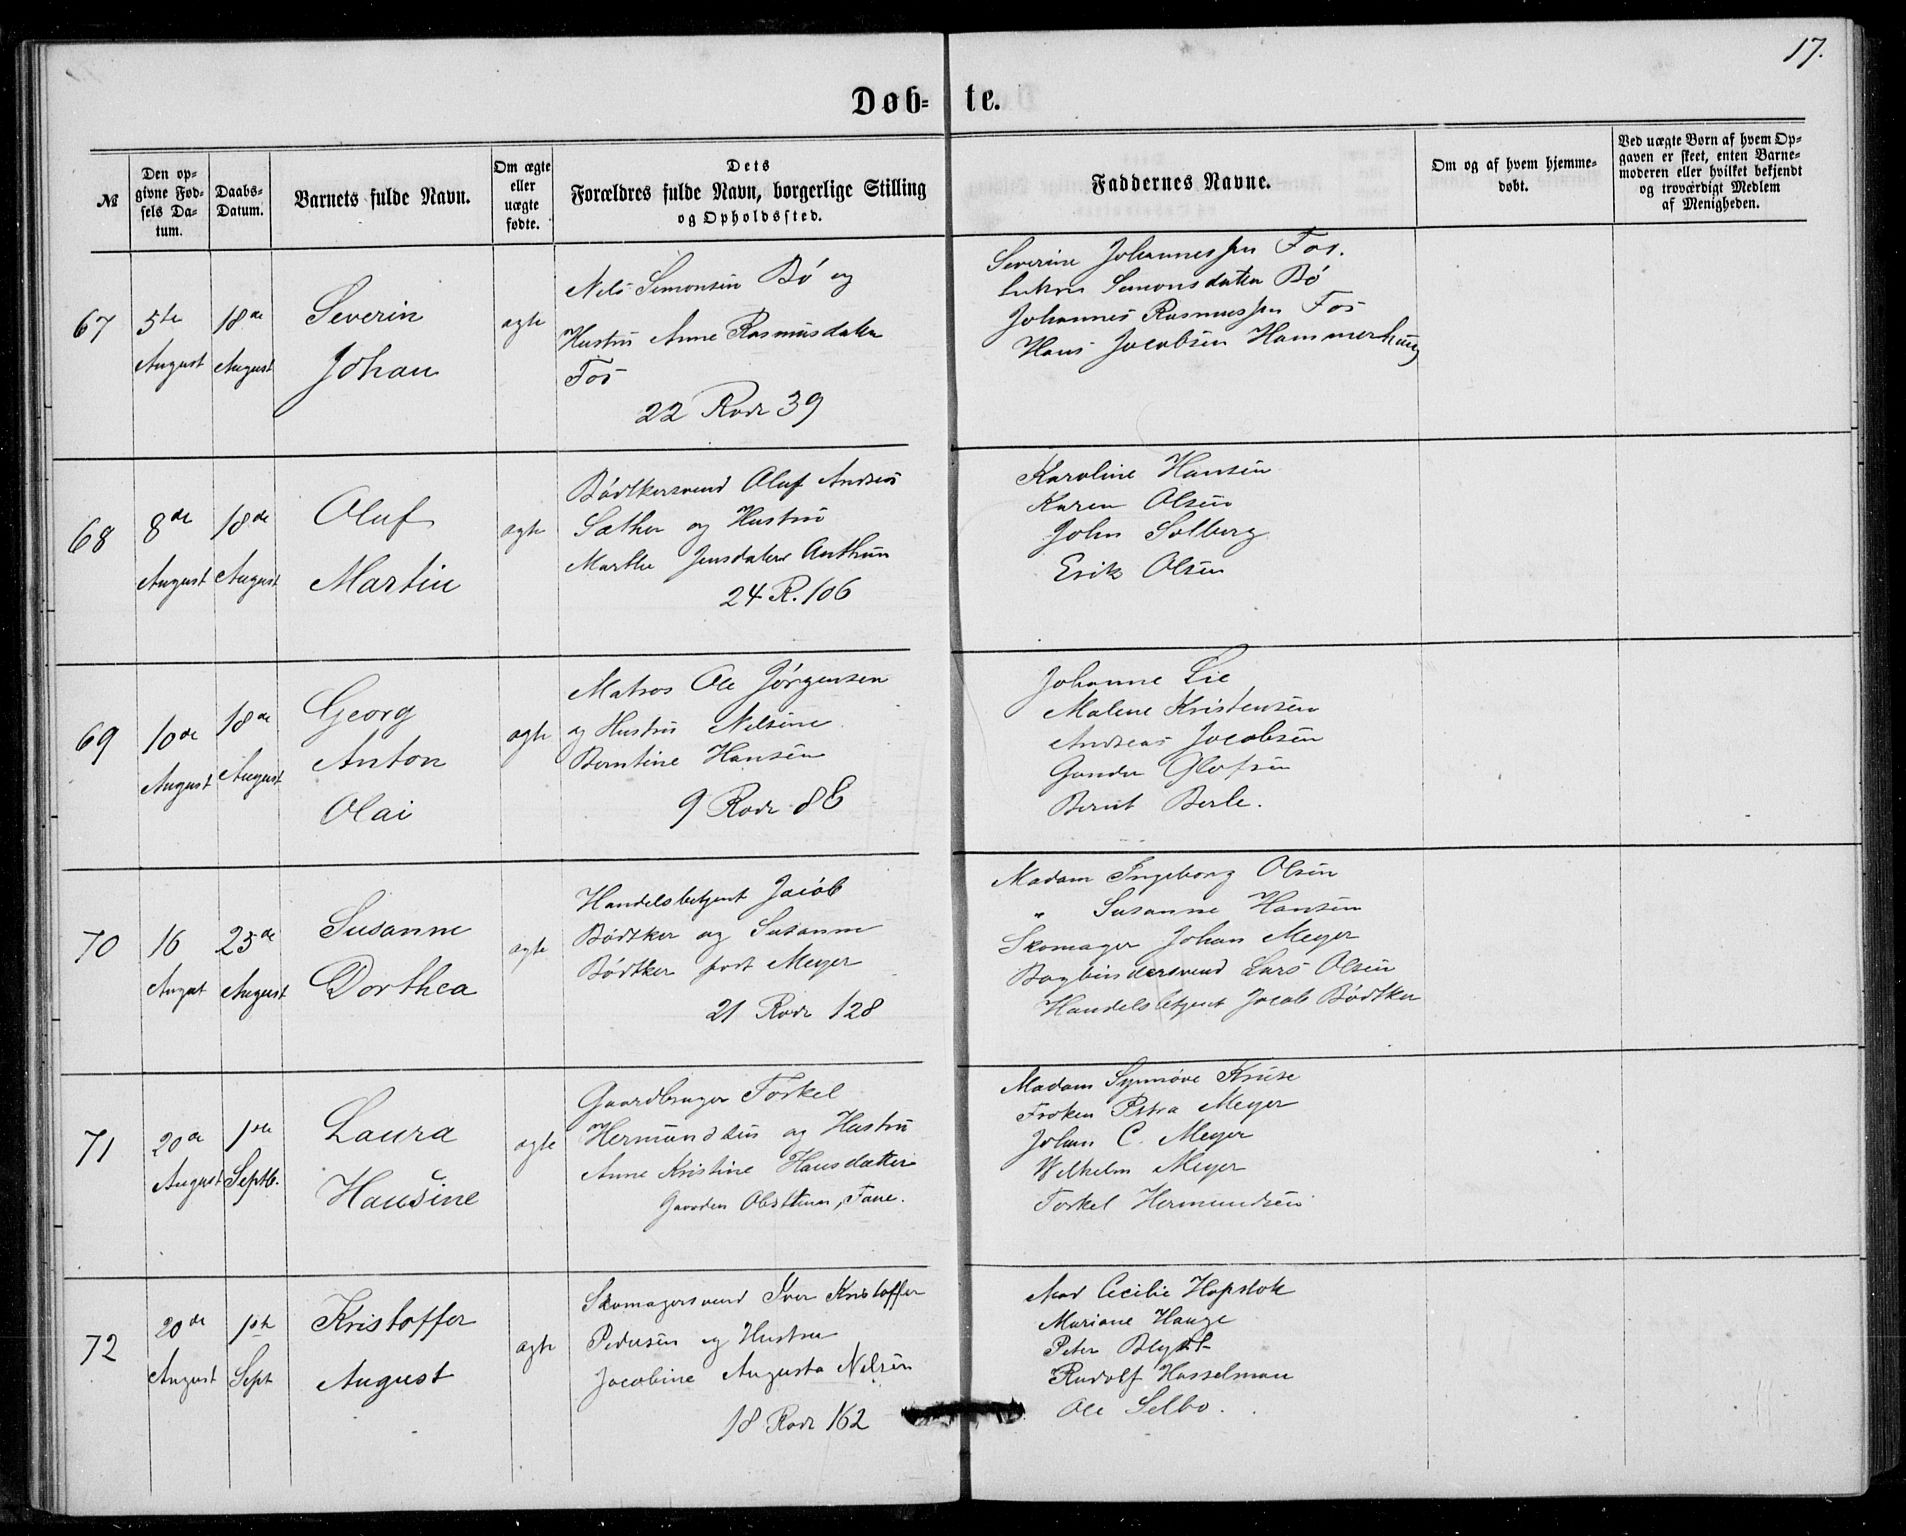 17.
Døb-te.
№
Den op-
givne Fød-
sels Da-
tum.
Daabs-
Datum.
Barnets fulde Navn.
Om ægte
eller
uægte
fødte.
Dets
Forældres fulde Navn, borgerlige Stilling
og Opholdssted.
Faddernes Navne.
Om og af hvem hjemme-
døbt.
Ved uægte Børn af hvem Op-
gaven er skeet, enten Barne-
moderen eller hvilket bekjendt
og troværdigt Medlem
af Menigheden.
67
5te
August
18de
August
Severin
Johan
ægte
Nils Simonsen Bø og
Hustru Anne Rasmusdatter
Fos
22 Rode 39
Severine Johannessen Fos.
Simonsdatter Bø
Johannes Rasmussen Fos
Hans Jacobsen Hammerhaug
68
8de
August
18de
August
Oluf
Martin
ægte
Bødtkersvend Oluf Andreas
Sæther og Hustru
Marthe Jensdatter Anthun
24 R. 106
Karoline Hansen
Karen Olsen
John Solberg
Erik Olsen
69
10de
August
18de
August
Georg
Anton
Olai
ægte
Matros Ole Jørgensen
og Hustru Nelsine
Berntine Hansen
9 Rode 8E
Johanne Lie
Malene Kristensen
Andreas Jacobsen
Gunder Olofsen
Bernt Berle.
70
16
August
25de
August
Susanne
Dorthea
ægte
Handelsbetjent Jacob
Bødtker og Susanne
Bødtker født Meyer
21 Rode 128
Madam Ingeborg Olsen
" Susanne Hansen
Skomager Johan Meyer
Bogbindersvend Lars Olsen
Handelsbetjent Jacob Bødtker
71
20de
August
1ste
Septb.
Laura
Hansine
ægte
Gaardbruger Torkel
Hermundsen og Hustru
Anne Kristine Hansdatter
Gaarden , Fane.
Madam Synnøve Kruse
Frøken Petra Meyer
Johan C. Meyer
Wilhelm Meyer
Torkel Hermundsen
72
20de
August
1ste
Sept
Kristoffer
August
ægte
Skomagersvend Iver Kristoffer
Pedersen og Hustru
Jacobine Augusta Nelsen
18 Rode 162
Mad Cecilie Hopstok
Mariane Hauge
Peter Blydt
Rudolf Hasselman
Ole Selbo.